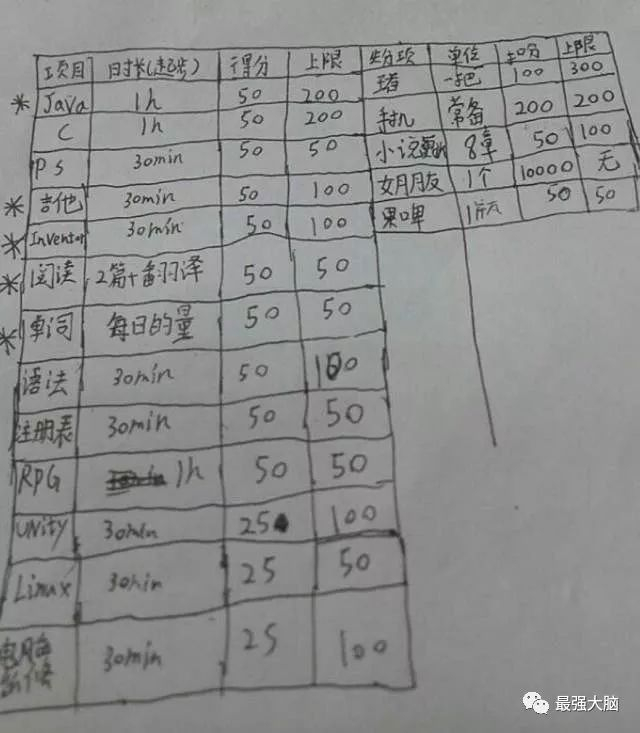 项目 时长(起步) 得分 上限 失分项 单位 扣分 上限
* Java 1h 50 200 一把 100 300
C 1h 50 200 手机 常备 200 200
PS 30min 50 50 小说 8章 50 100
* 吉他 30min 50 100 女朋友 1个 10000 无
* Inventor 30min 50 100 果啤 50 50
* 阅读 2篇+翻译 50 50
* 单词 每日的量 50 50
语法 30min 50 100
注册表 30min 50 50
RPG 1h 50 50
Unity 30min 25 100
Linux 30min 25 50
电脑 30min 25 100
最强大脑